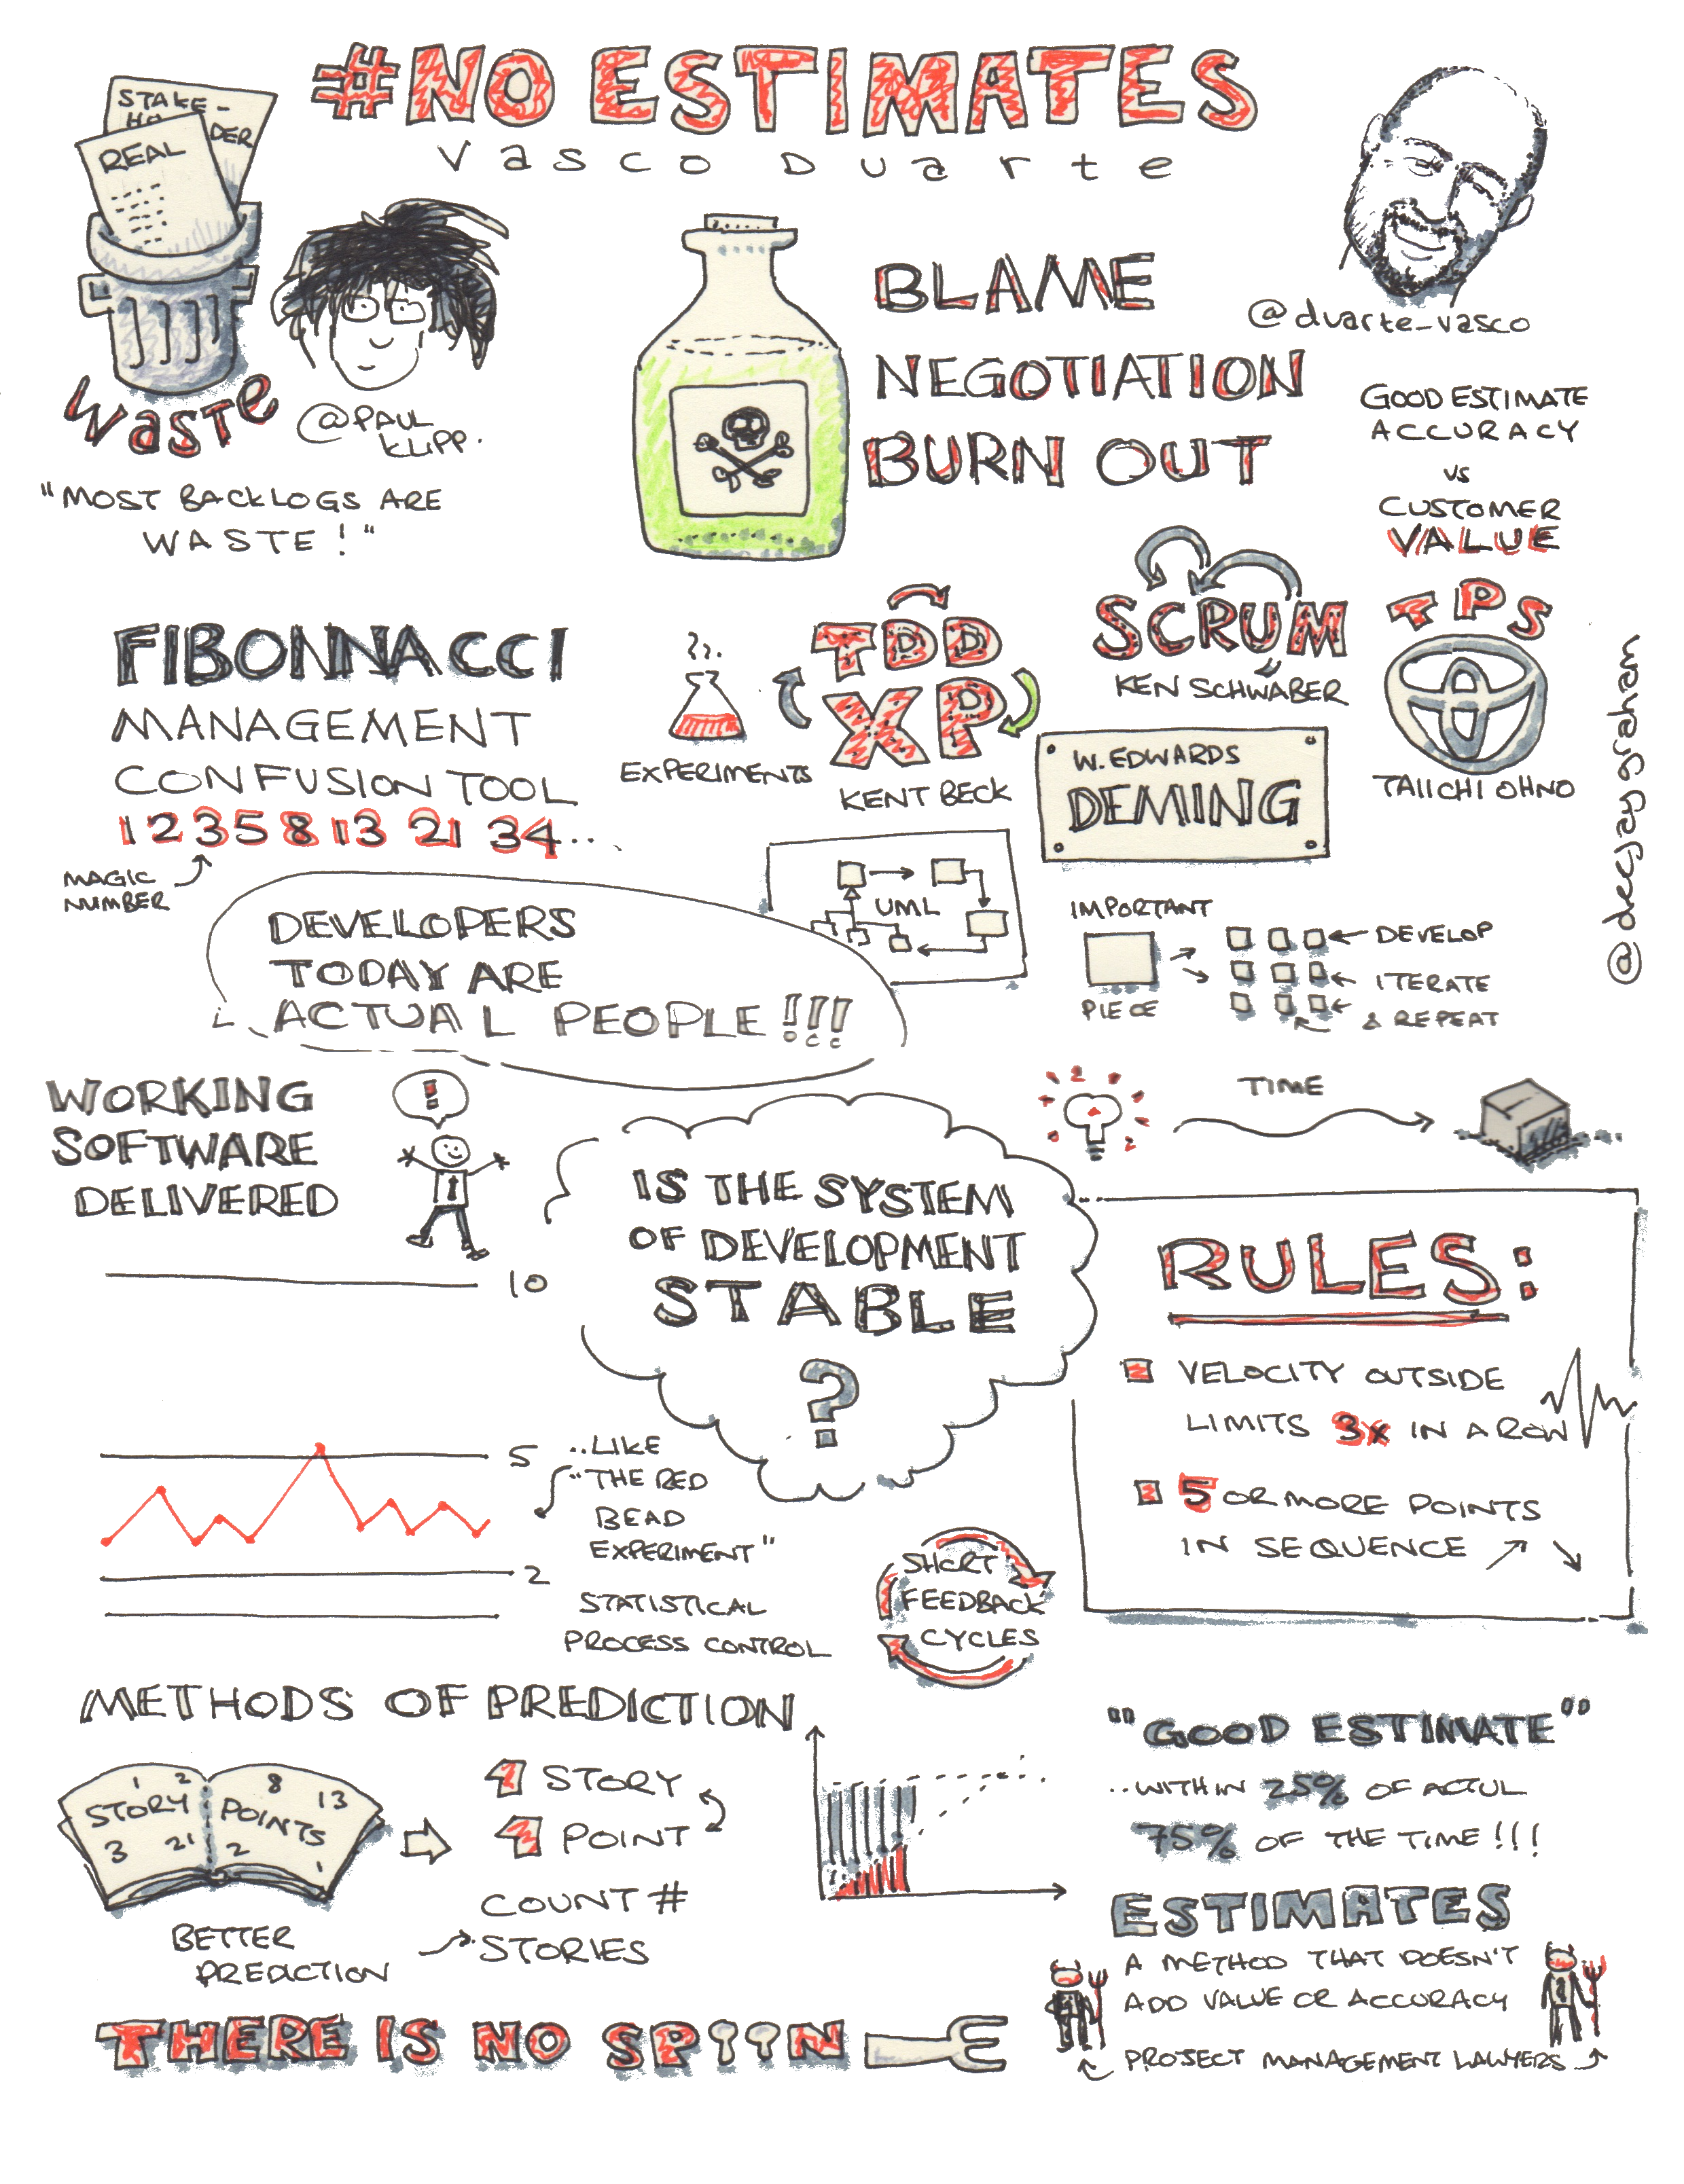 #NO ESTIMATES
Vasco Duarte
STAKE-
HO DER
REAL
WASTE
@PAUL
KLIPP.
"MOST BACKLOGS ARE
WASTE!"
BLAME
NEGOTIATION
BURN OUT
@duarte_vasco
GOOD ESTIMATE
ACCURACY
VS
CUSTOMER
VALUE
FIBONNACCI
MANAGEMENT
CONFUSION TOOL
1 2 3 5 8 13 21 34...
MAGIC
NUMBER
EXPERIMENTS
TDD
XP
KENT BECK
SCRUM
KEN SCHWABER
TPS
TAIICHI OHNO
W. EDWARDS
DEMING
@deejaygraham
UML
DEVELOPERS
TODAY ARE
ACTUAL PEOPLE!!!
IMPORTANT
PIECE
DEVELOP
ITERATE
& REPEAT
TIME
WORKING
SOFTWARE
DELIVERED
!
10
5
2
IS THE SYSTEM
OF DEVELOPMENT
STABLE
?
..LIKE
"THE RED
BEAD
EXPERIMENT"
STATISTICAL
PROCESS CONTROL
SHORT
FEEDBACK
CYCLES
RULES:
VELOCITY OUTSIDE
LIMITS 3x IN A ROW
5 OR MORE POINTS
IN SEQUENCE
METHODS OF PREDICTION
1 2 8 13
STORY POINTS
3 21 2 1
BETTER
PREDICTION
1 STORY
1 POINT
COUNT #
STORIES
"GOOD ESTIMATE"
..WITHIN 25% OF ACTUL
75% OF THE TIME!!!
ESTIMATES
A METHOD THAT DOESN'T
ADD VALUE OR ACCURACY
PROJECT MANAGEMENT LAWYERS
THERE IS NO SPOON